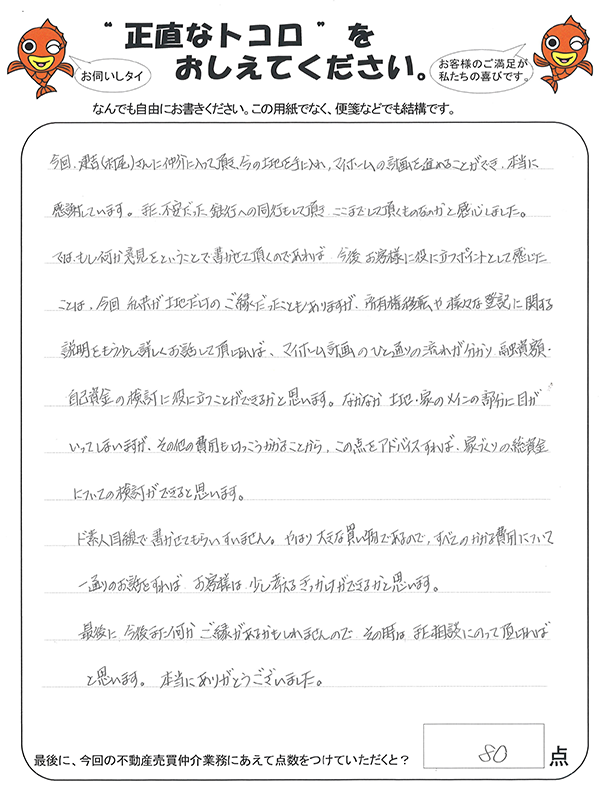 “正直なトコロ”を
おしえてください。
お伺いしタイ
お客様のご満足が
私たちの喜びです。
なんでも自由にお書きください。この用紙でなく、便箋などでも結構です。
今回、(村尾)さんに仲介に入って頂き、今の土地を手に入れ、マイホームの計画を進めることができ、本当に
感謝しています。また、不安だった銀行への同行もして頂き、ここまでして頂くものなのかと感心しました。
では、もし何か意見をということで書かせて頂くのであれば、今後お客様に役に立つポイントとして感じた
ことは、今回私共が土地だけのご縁だったこともありますが、所有権移転や様々な登記に関する
説明をもう少し詳しくお話して頂ければ、マイホーム計画のひと通りの流れが分かり融資額・
自己資金の検討に役に立つことができるかと思います。なかなか土地・家のメインの部分に目が
いってしまいますが、その他の費用もけっこうかかることから、この点をアドバイスすれば、家づくりの総資金
についての検討ができると思います。
ド素人目線で書かせてもらいすいません。やはり大きな買い物であるので、すべてのかかる費用について
一通りのお話をすれば お客様は少し考えるきっかけができるかと思います。
最後に 今後また何か ご縁があるかもしれませんので その時は また相談にのって頂ければ
と思います。本当にありがとうございました。
最後に、今回の不動産売買仲介業務にあえて点数をつけていただくと?
80 点